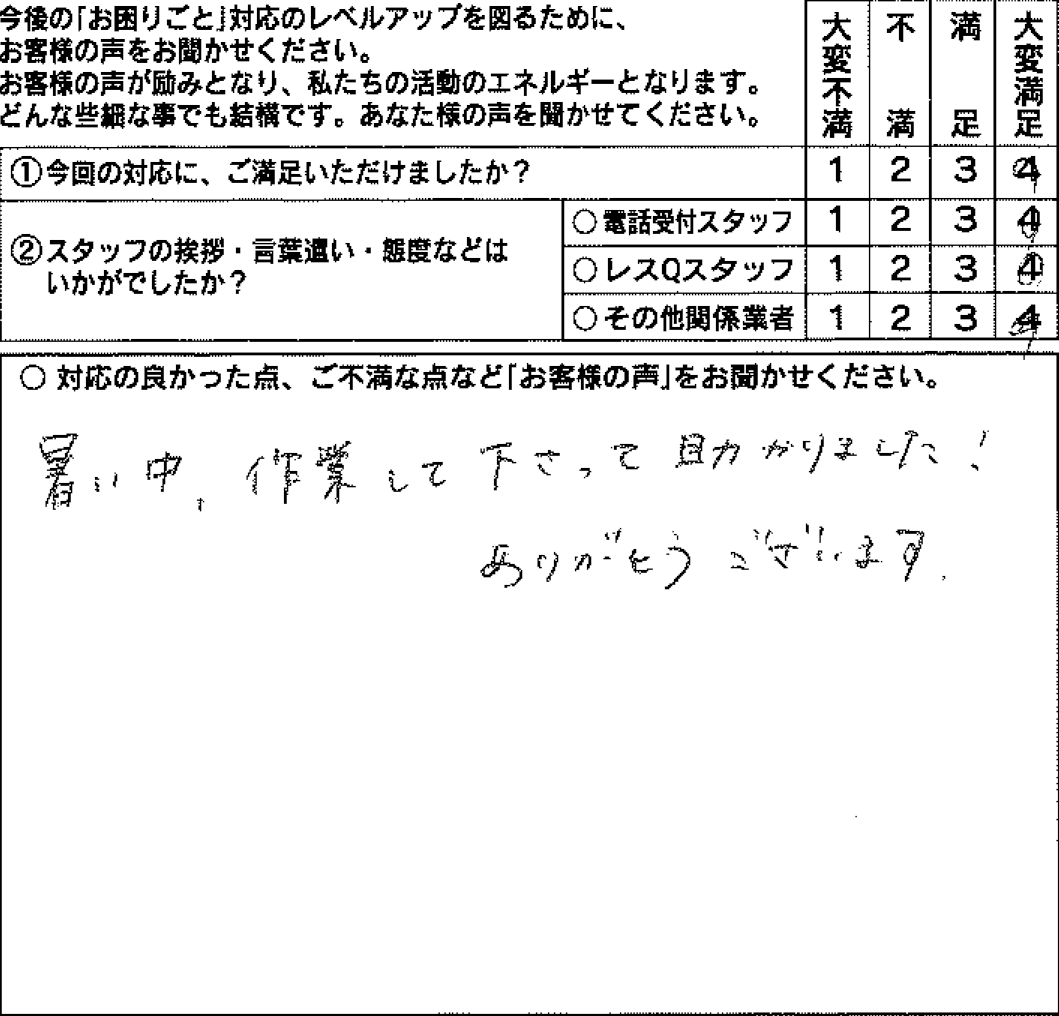 今後の「お困りごと」対応のレベルアップを図るために、
お客様の声をお聞かせください。
お客様の声が励みとなり、私たちの活動のエネルギーとなります。
どんな些細な事でも結構です。あなた様の声を聞かせてください。
大変不満 不満 満足 大変満足
①今回の対応に、ご満足いただけましたか? 1 2 3 4
②スタッフの挨拶・言葉遣い・態度などは
いかがでしたか?
○電話受付スタッフ 1 2 3 4
○レスQスタッフ 1 2 3 4
○その他関係業者 1 2 3 4
○ 対応の良かった点、ご不満な点など「お客様の声」をお聞かせください。
暑い中、作業して下さって助かりました!
ありがとうございます。